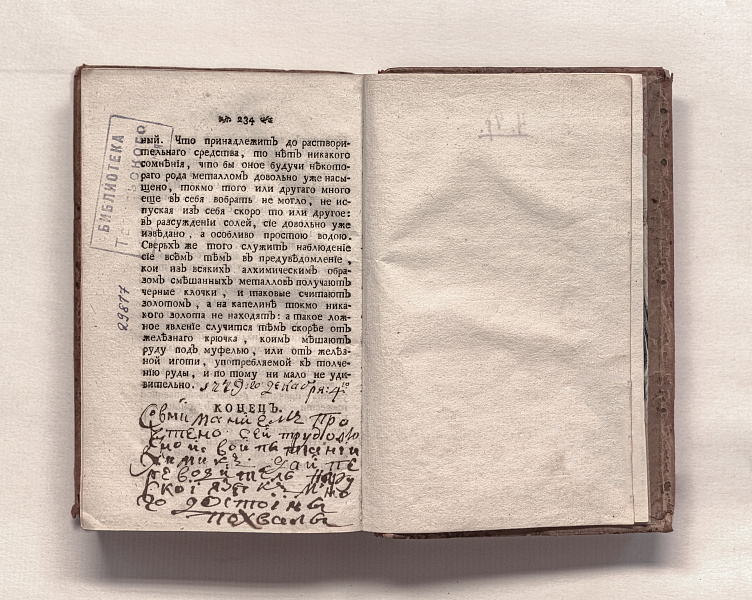 234
ный. Что принадлежитъ до раствори-
тельнаго средства, то нѣтъ никакого
сомнѣнія, что бы оное будучи нѣкото-
раго рода металломъ довольно уже насы-
щено, токмо того или другаго много
еще въ себя вобрать не могло, не ис-
пуская изъ себя скоро то или другое:
въ разсужденіи солей, сіе довольно уже
извѣдано, а особливо простою водою.
Сверьхъ же того служитъ наблюденіе
сіе всѣмъ тѣмъ въ предувѣдомленіе,
кои изъ всякихъ алхимическимъ обра-
зомъ смѣшанныхъ металловъ получаютъ
черные клочки, и таковые считаютъ
золотомъ, а на капелинѣ токмо ника-
кого золота не находятъ: а такое лож-
ное явленіе случится тѣмъ скорѣе отъ
желѣзнаго крючка, коимъ мѣшаютъ
руду подъ муфелью, или отъ желѣз-
ной иготи, употребляемой къ толче-
нію руды, и по тому ни мало не уди-
вительно. декабря: 4го
КОНЕЦЪ.
про
чтено: сей
и
пе
достоінъ
похвалы
БИБЛІОТЕКА
29817